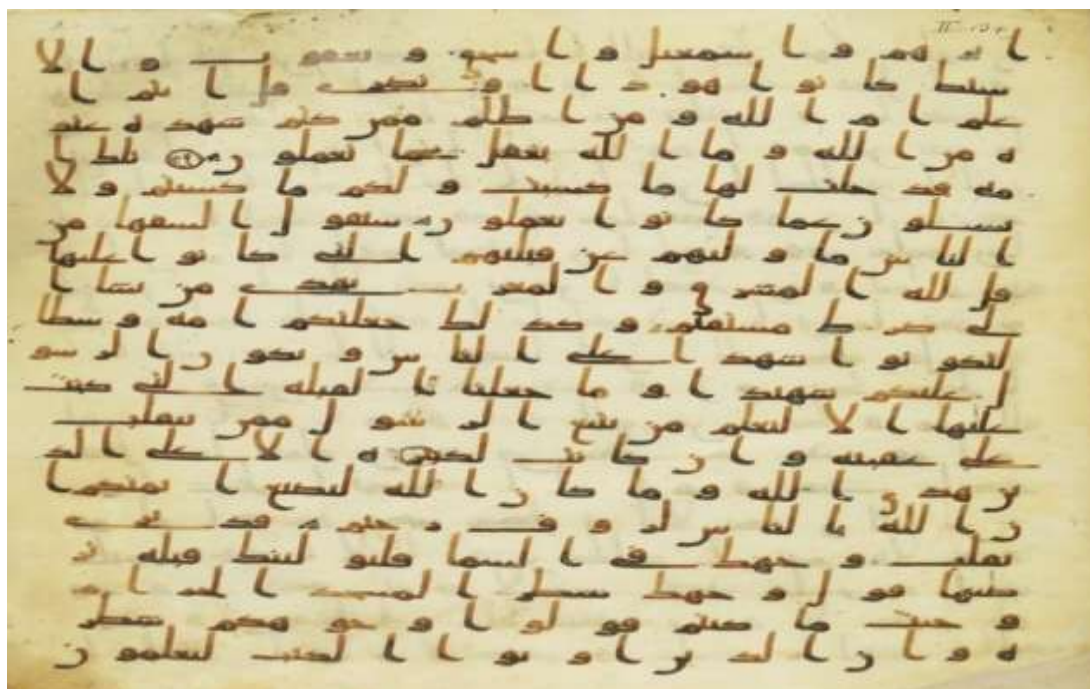 ابرهم واسمعيل واسحق ويعقوب والا
سبط كانوا هودا او نصرى قل اانتم ا
علم ام الله ومن اظلم ممن كتم شهدة عند
ه من الله وما الله بغفل عما تعملون تلك ا
مة قد خلت لها ما كسبت ولكم ما كسبتم ولا
تسلون عما كانوا يعملون سيقول السفها من
الناس ما وليهم عن قبلتهم التي كانوا عليها
قل لله المشرق والمغرب يهدي من يشا ا
لى صرط مستقيم وكذلك جعلنكم امة وسطا
لتكونوا شهدا على الناس ويكون الرسو
ل عليكم شهيدا وما جعلنا القبلة التي كنت
عليها الا لنعلم من يتبع الرسول ممن ينقلب
على عقبيه وان كانت لكبيرة الا على الذ
ين هدى الله وما كان الله ليضيع ايمنكم ا
ن الله بالناس لروف رحيم قد نرى
تقلب وجهك في السما فلنولينك قبلة تر
ضيها فول وجهك شطر المسجد الحرام
وحيث ما كنتم فولوا وجوهكم شطر
ه وان الذين اوتوا الكتب ليعلمون